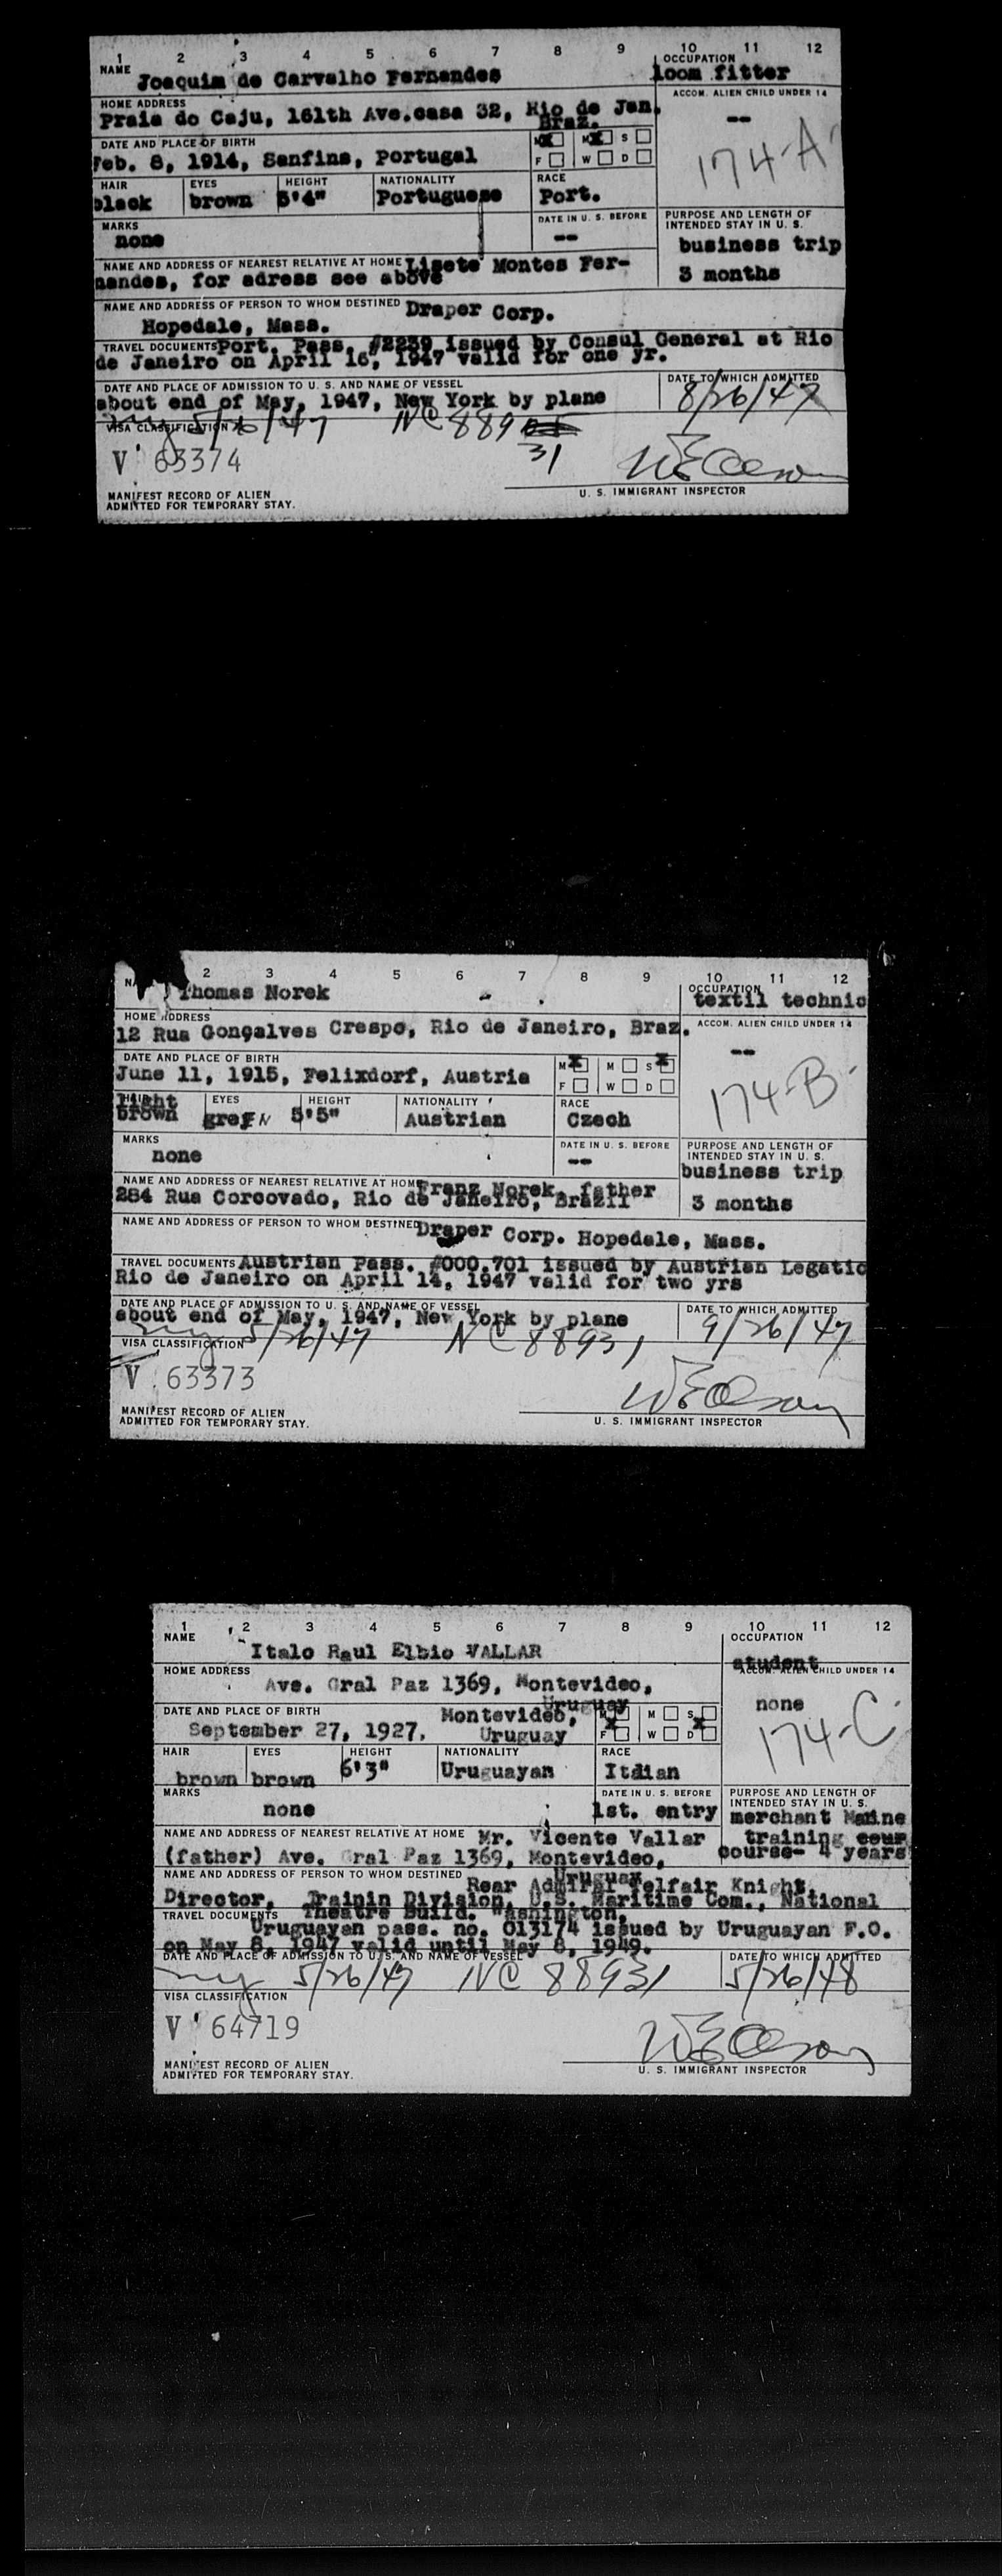 1 2 3 4 5 6 7 8 9 10 11 12
NAME Joaquim de Carvalho Fernandes
OCCUPATION
loom fitter
HOME ADDRESS
Praia do Caju, 161th Ave.casa 32, Rio de Jan.
Braz.
ACCOM. ALIEN CHILD UNDER 14
--
174-A
DATE AND PLACE OF BIRTH
Feb. 8, 1914, Sanfins, Portugal
M X M X S
F W D
HAIR EYES HEIGHT NATIONALITY RACE
black brown 5'4" Portuguese Port.
MARKS
none
DATE IN U. S. BEFORE
--
PURPOSE AND LENGTH OF
INTENDED STAY IN U. S.
business trip
3 months
NAME AND ADDRESS OF NEAREST RELATIVE AT HOME Lisete Montes Fer-
nandes, for adress see above
NAME AND ADDRESS OF PERSON TO WHOM DESTINED Draper Corp.
Hopedale, Mass.
TRAVEL DOCUMENTS Port. Pass. #2239 issued by Consul General at Rio
de Janeiro on April 16, 1947 valid for one yr.
DATE AND PLACE OF ADMISSION TO U. S. AND NAME OF VESSEL
about end of May, 1947, New York by plane
DATE TO WHICH ADMITTED
8/26/47
ny 5/26/47 NC 889
31
VISA CLASSIFICATION
V 63374
WE Olson
U. S. IMMIGRANT INSPECTOR
MANIFEST RECORD OF ALIEN
ADMITTED FOR TEMPORARY STAY.
2 3 4 5 6 7 8 9 10 11 12
Thomas Norek
OCCUPATION
textil technic
HOME ADDRESS
12 Rua Gonçalves Crespo, Rio de Janeiro, Braz.
ACCOM. ALIEN CHILD UNDER 14
--
174-B
DATE AND PLACE OF BIRTH
June 11, 1915, Felixdorf, Austria
M X M S X
F W D
HAIR EYES HEIGHT NATIONALITY RACE
light
brown grey N 5'5" Austrian Czech
MARKS
none
DATE IN U. S. BEFORE
--
PURPOSE AND LENGTH OF
INTENDED STAY IN U. S.
business trip
3 months
NAME AND ADDRESS OF NEAREST RELATIVE AT HOME Franz Norek, father
284 Rua Corcovado, Rio de Janeiro, Brazil
NAME AND ADDRESS OF PERSON TO WHOM DESTINED Draper Corp. Hopedale, Mass.
TRAVEL DOCUMENTS Austrian Pass. #000.701 issued by Austrian Legatio
Rio de Janeiro on April 14, 1947 valid for two yrs
DATE AND PLACE OF ADMISSION TO U. S. AND NAME OF VESSEL
about end of May, 1947, New York by plane
DATE TO WHICH ADMITTED
9/26/47
ny 5/26/47 NC 88931
VISA CLASSIFICATION
V 63373
WE Olson
U. S. IMMIGRANT INSPECTOR
MANIFEST RECORD OF ALIEN
ADMITTED FOR TEMPORARY STAY.
1 2 3 4 5 6 7 8 9 10 11 12
NAME
Italo Raul Elbio VALLAR
OCCUPATION
student
HOME ADDRESS
Ave. Gral Paz 1369, Montevideo,
Uruguay
ACCOM. ALIEN CHILD UNDER 14
none
174-C
DATE AND PLACE OF BIRTH
September 27, 1927, Montevideo,
Uruguay
M X M S X
F W D
HAIR EYES HEIGHT NATIONALITY RACE
brown brown 6'3" Uruguayan Itdian
MARKS
none
DATE IN U. S. BEFORE
1st. entry
PURPOSE AND LENGTH OF
INTENDED STAY IN U. S.
merchant Marine
training cour
course- 4 years
NAME AND ADDRESS OF NEAREST RELATIVE AT HOME Mr. Vicente Vallar
(father) Ave. Gral Paz 1369, Montevideo,
Uruguay
NAME AND ADDRESS OF PERSON TO WHOM DESTINED Rear Admiral Telfair Knight,
Director, Trainin Division, U.S. Maritime Com., National
Theatre Build. Washington,
TRAVEL DOCUMENTS
Uruguayan pass. no. 013174 issued by Uruguayan F.O.
on May 8, 1947 valid until May 8, 1949.
DATE AND PLACE OF ADMISSION TO U. S. AND NAME OF VESSEL
ny 5/26/47 NC 88931
DATE TO WHICH ADMITTED
5/26/48
VISA CLASSIFICATION
V 64719
WE Olson
U. S. IMMIGRANT INSPECTOR
MANIFEST RECORD OF ALIEN
ADMITTED FOR TEMPORARY STAY.